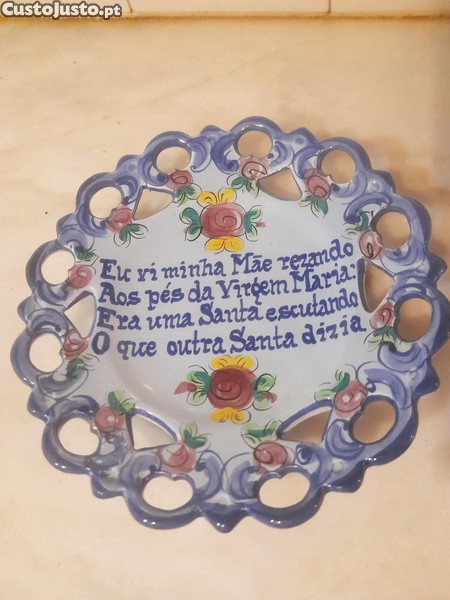 CustoJusto.pt
Eu vi minha Mãe rezando
Aos pés da Virgem Maria:
Era uma Santa escutando
O que outra Santa dizia